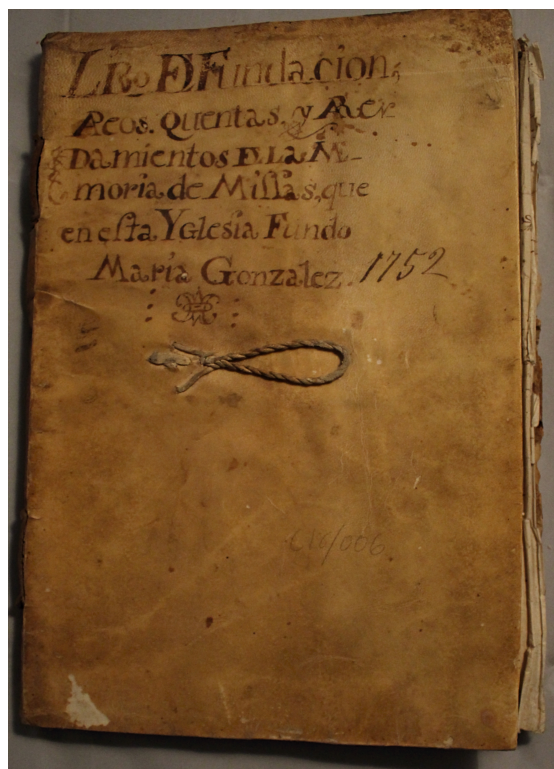 LRo DE Fundacion,
Apeos. Quentas. y ARen-
Damientos DE La ME-
moria de Missas, que
en esta YGlesia Fundo
Maria Gonzalez. 1752
C16/006